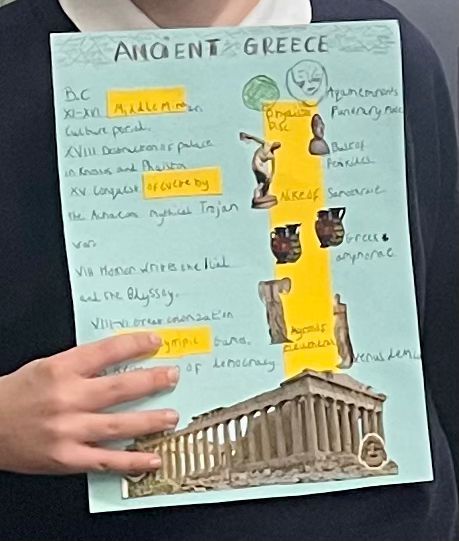 ANCIENT GREECE
B.C
XI-XVI Middle Minoan
Culture period.
XVIII Destruction of palace
in Knosos and Phaistos
XV Conquest of Crete by
the Achaeans mythical Trojan
war
VIII Homer writes the Iliad
and the Odyssey.
VIII-VI Greek colonization
Olympic
of democracy
Agamemnon's
Funerary Mask
Disc
Bust of
Pericles
Nike of Samotracia
Greek
amphorae
Venus